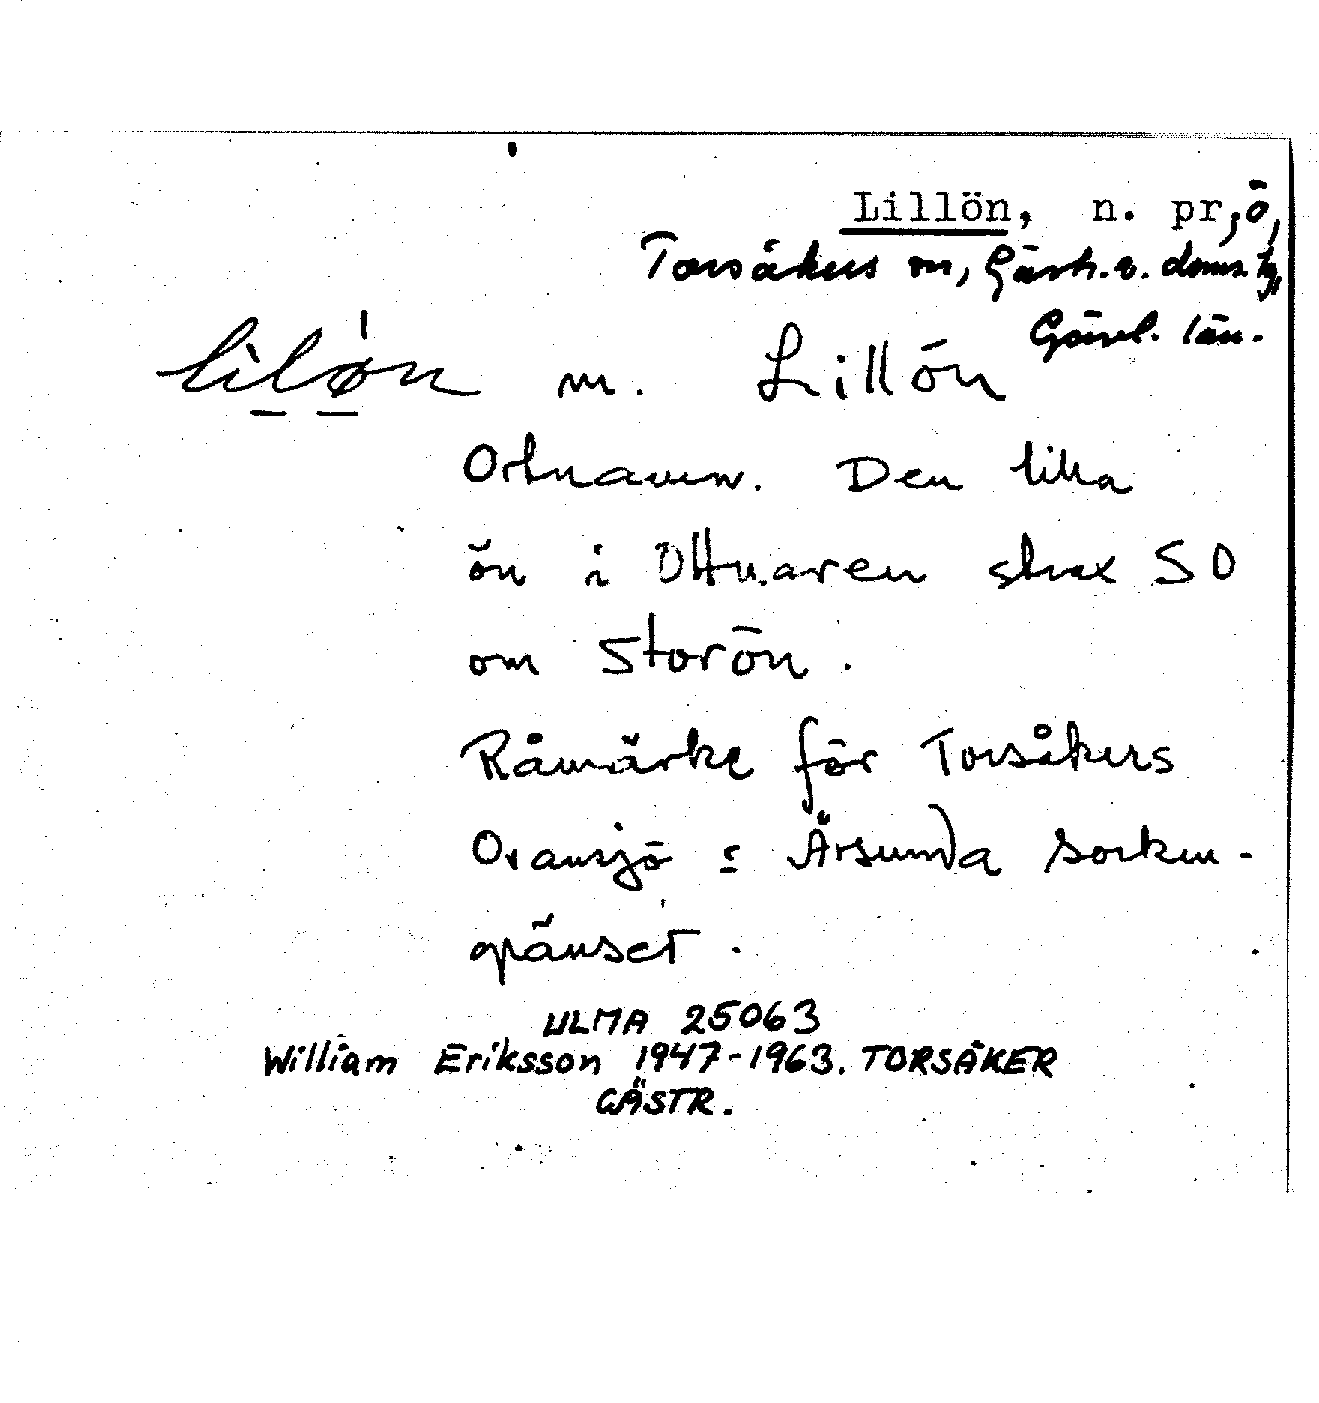 Lillön, n. pr, ö,
Torsåkers sn, Gästr. v. doms.
Gävl. län.
lilön m. Lillön
Ortnamn. Den lilla
ön i Ottnaren strax SO
om Storön.
Råmärke för Torsåkers
Ovansjö : Årsunda socken-
gränset.
ULMA 25063
William Eriksson 1947-1963. TORSÅKER
GÄSTR.